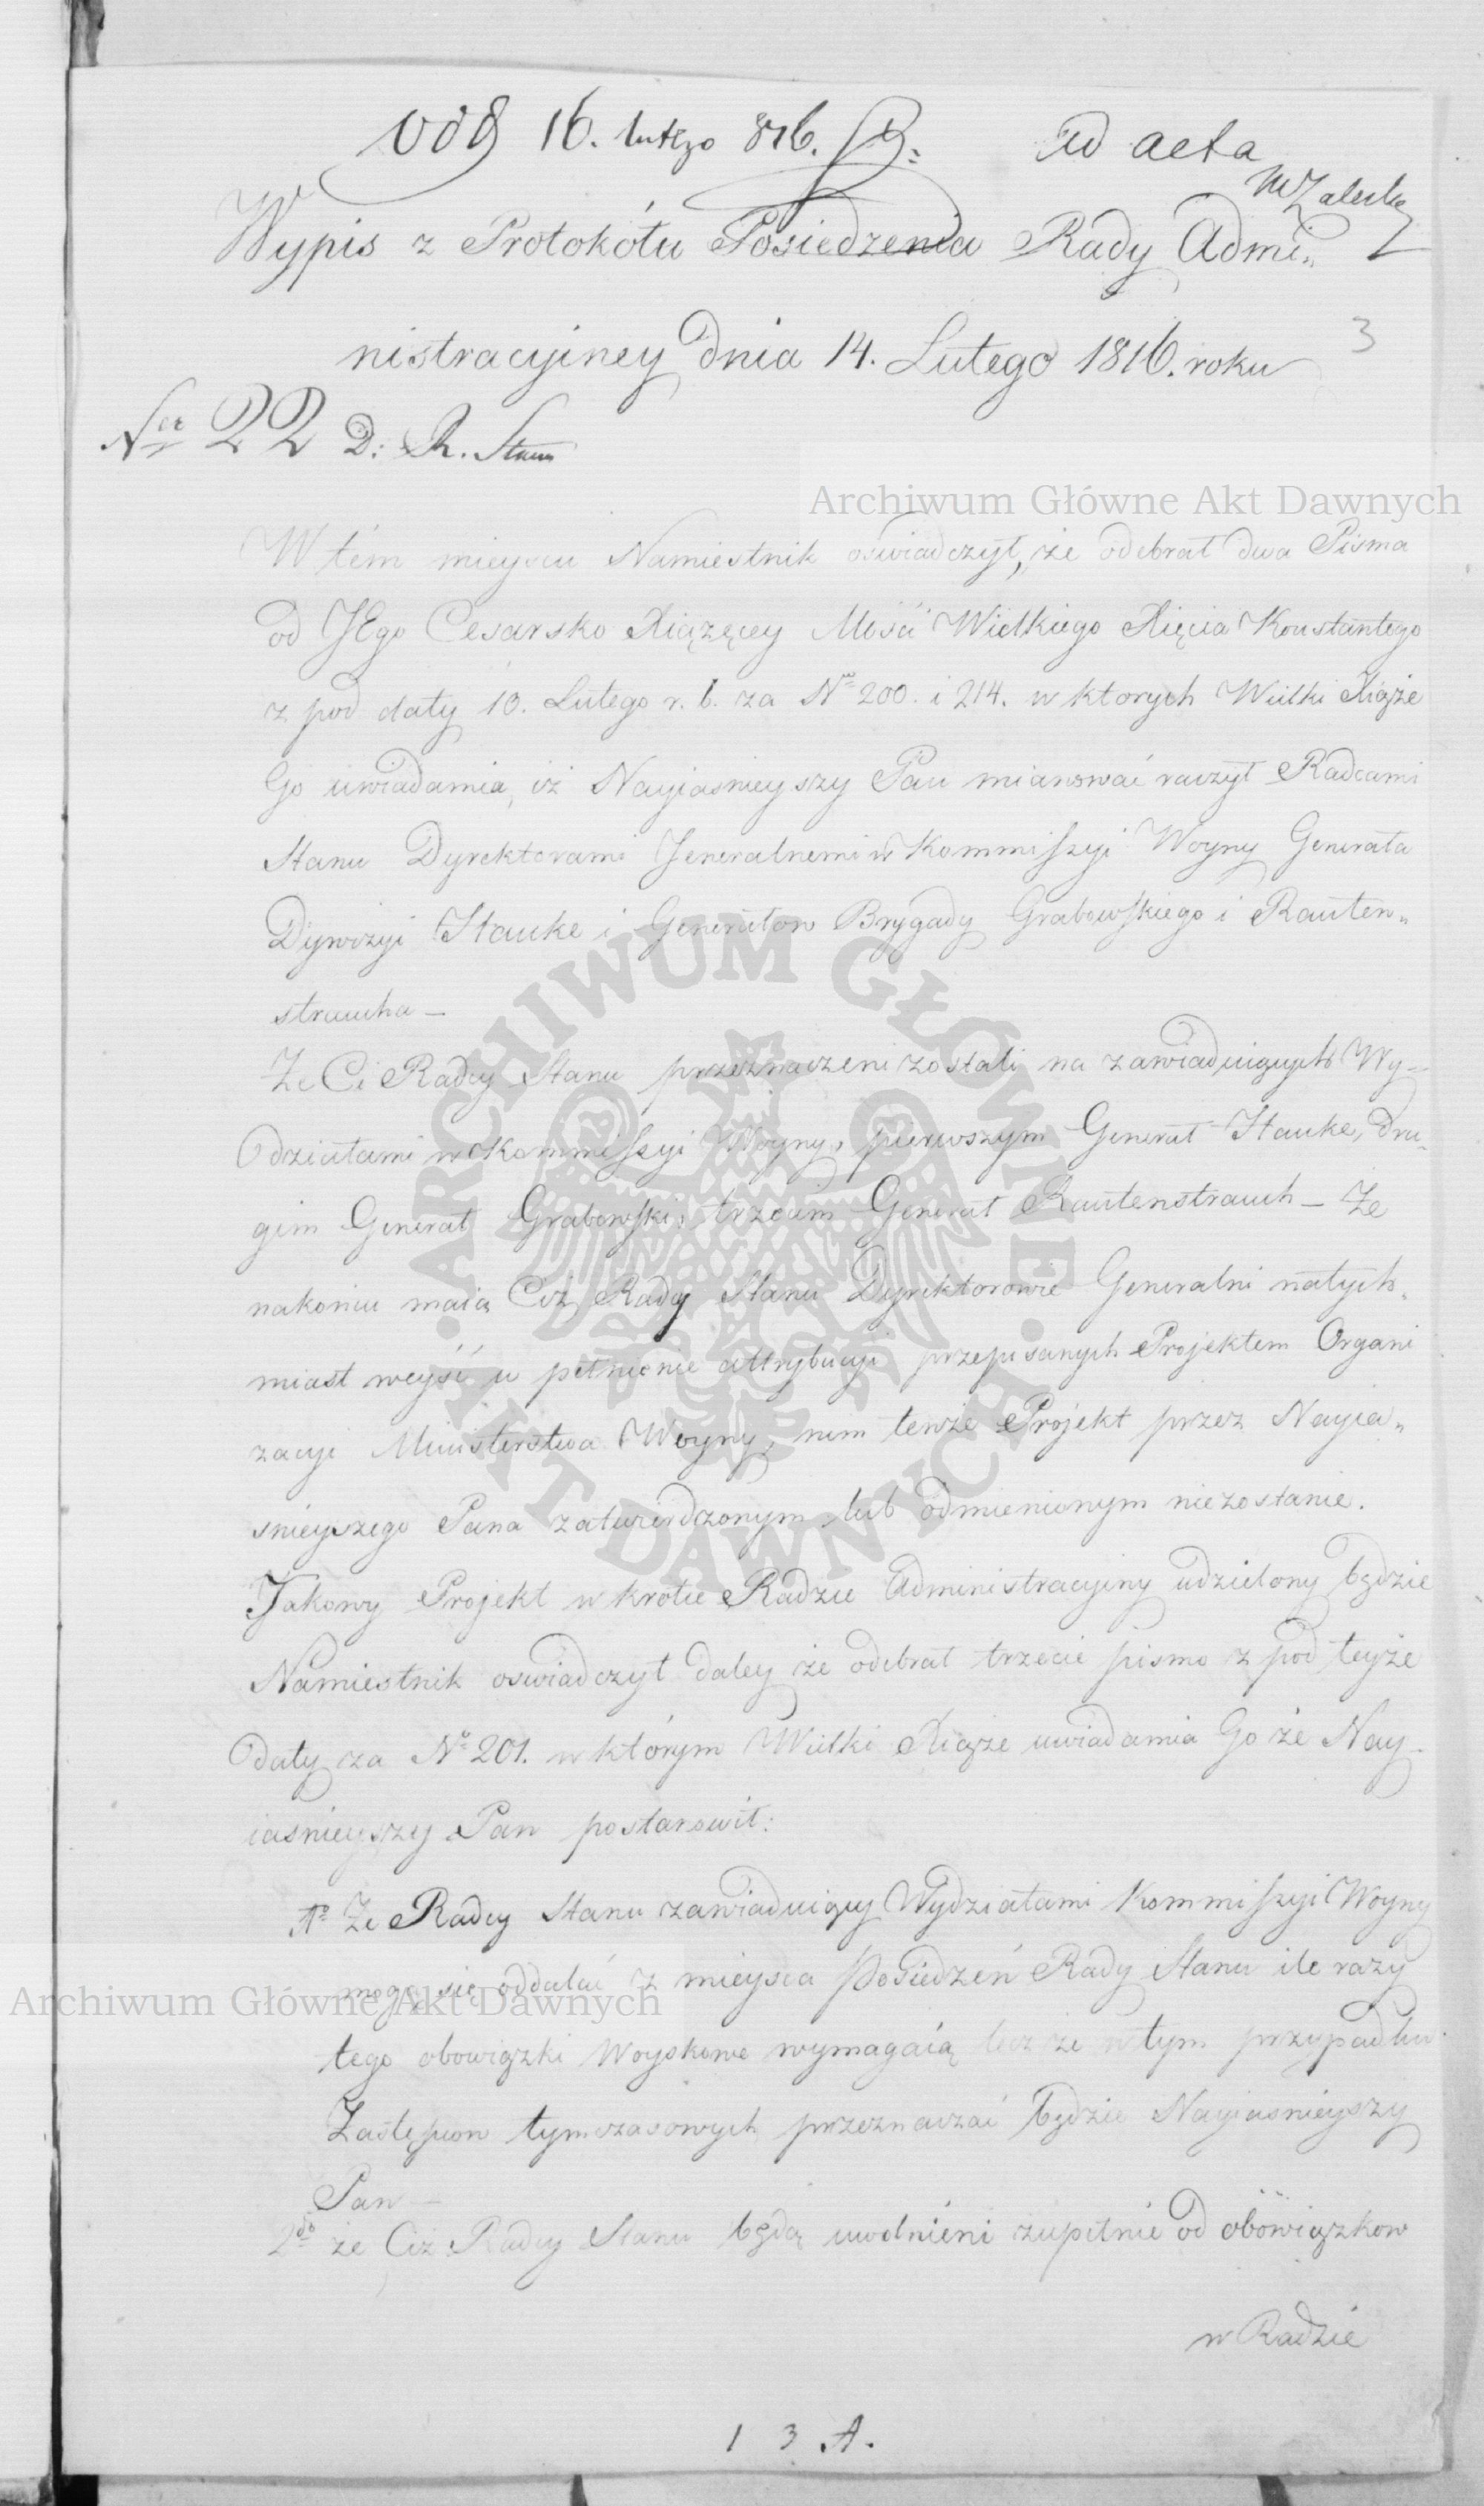 16. lutego 816.
ad acta
MZaleski
Wypis z Protokółu Posiedzenia Rady Admi„
nistracyiney dnia 14. Lutego 1816. roku
3
Ner 22 D: R. Stanu
Archiwum Główne Akt Dawnych
W tém mieyscu Namiestnik oswiadczył, że odebrał dwa Pisma
od JEgo Cesarsko Xiążęcey Mości Wielkiego Xięcia Konstantego
z pod daty 10. Lutego r. b. za No 200. i 214. w ktorych Wielki Xiąże
Go uwiadamia, iż Nayiasnieyszy Pan mianować raczył Radcami
Stanu Dyrektorami Jeneralnemi w Kommissyi Woyny Generała
Dywizyi Hauke i Generałow Brygady Grabowskiego i Rauten„
straucha —
Że Ci Radcy Stanu przeznaczeni zostali na zawiaduiących Wy-
działami w Kommissyi Woyny, pierwszym Generał Hauke, dru-
gim Generał Grabowski, trzecim Generał Rautenstrauch — Że
nakoniec maią Ciż Radcy Stanu Dyrektorowie Generalni natych„
miast weyść w pełnienie attrybucyi przepisanych Projektem Organi
zacyi Ministerstwa Woyny, nim tenże Projekt przez Nayia„
śnieyszego Pana zatwierdzonym lub odmienionym niezostanie.
Jakowy Projekt wkrotce Radzie Administracyiny udzielony będzie
Namiestnik oswiadczył daley że odebrał trzecie pismo z pod teyże
daty za No 201. w którym Wielki Xiąże uwiadamia Go że Nay-
iaśnieyszy Pan postanowił:
1o Że Radcy Stanu zawiaduiący Wydziałami Kommissyi Woyny
mogą się oddalać z mieysca Posiedzeń Rady Stanu ile razy
Archiwum Główne Akt Dawnych
tego obowiązki Woyskowe wymagaią lecz że w tym przypadku
Zastępcow tymczasowych przeznaczać będzie Nayiasnieyszy
Pan —
2do że Ciż Radcy Stanu będą uwolnieni zupełnie od obowiązkow
w Radzie
1 3 A.
ARCHIWUM GŁÓWNE AKT DAWNYCH